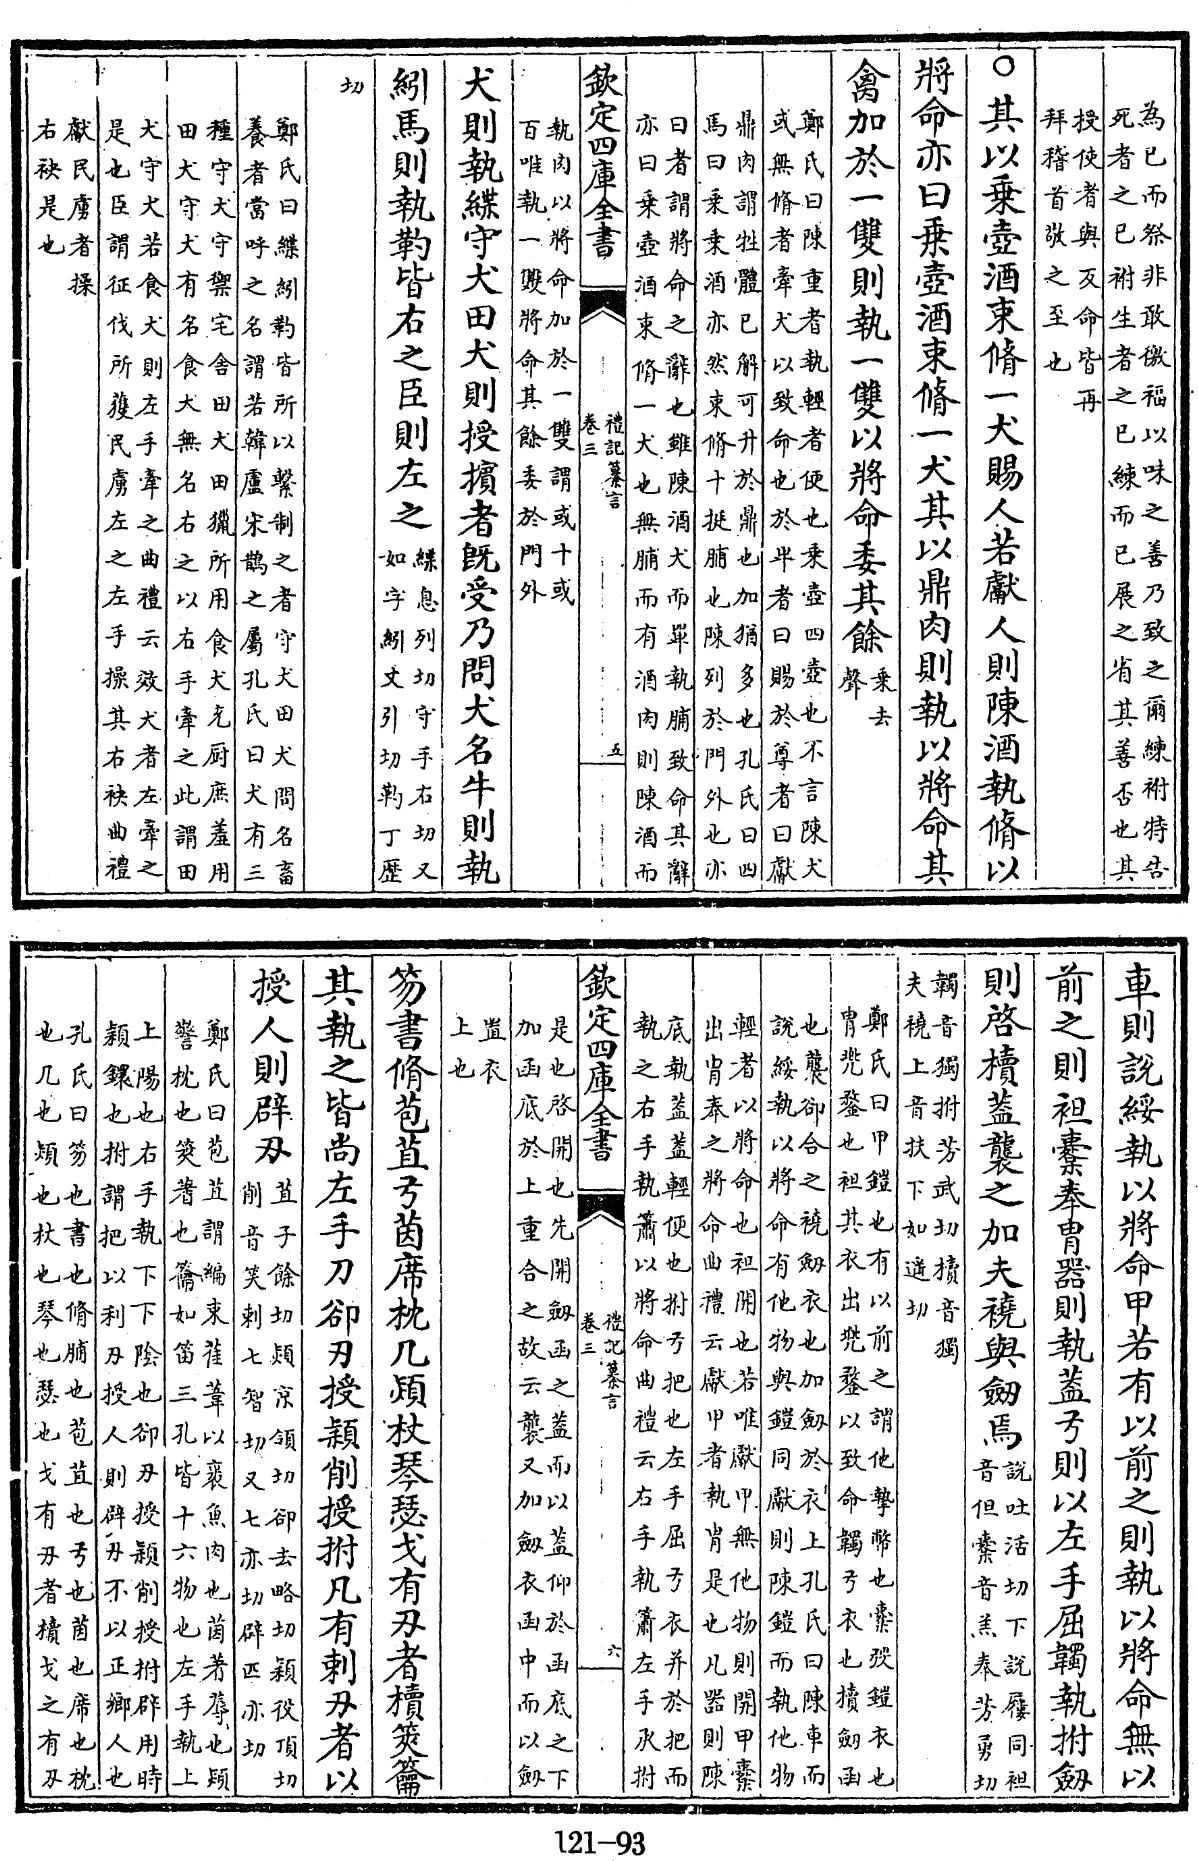 為已而祭非敢徼福以味之善乃致之爾練祔特告
死者之已祔生者之已練而已展之省其善否也其
授使者與反命皆再
拜稽首敬之至也
○其以乗壺酒束脩一犬賜人若獻人則陳酒執脩以
將命亦曰乗壺酒束脩一犬其以鼎肉則執以將命其
禽加於一雙則執一雙以將命委其餘
乗去
聲
鄭氏曰陳重者執輕者便也乗壺四壺也不言陳犬
或無脩者牽犬以致命也於卑者曰賜於尊者曰獻
鼎肉謂牲體已解可升於鼎也加猶多也孔氏曰四
馬曰乗乗酒亦然束脩十挺脯也陳列於門外也亦
曰者謂將命之辭也雖陳酒犬而單執脯致命其辭
亦曰乗壺酒束脩一犬也無脯而有酒肉則陳酒而
欽定四庫全書
禮記纂言
卷三
五
執肉以將命加於一雙謂或十或
百唯執一雙將命其餘委於門外
犬則執緤守犬田犬則授擯者既受乃問犬名牛則執
紖馬則執靮皆右之臣則左之
緤息列切守手右切又
如字紖丈引切靮丁歷
切
鄭氏曰緤紖靮皆所以繫制之者守犬田犬問名畜
養者當呼之名謂若韓盧宋鵲之屬孔氏曰犬有三
種守犬守禦宅舍田犬田獵所用食犬充厨庶羞用
田犬守犬有名食犬無名右之以右手牽之此謂田
犬守犬若食犬則左手牽之曲禮云效犬者左牽之
是也臣謂征伐所獲民虜左之左手操其右袂曲禮
獻民虜者操
右袂是也
車則說綏執以將命甲若有以前之則執以將命無以
前之則袒櫜奉胄器則執蓋弓則以左手屈韣執拊劔
則啓櫝蓋襲之加夫襓與劔焉
說吐活切下說屨同袒
音但櫜音羔奉芳勇切
韣音獨拊芳武切櫝音獨
夫襓上音扶下如遥切
鄭氏曰甲鎧也有以前之謂他摯幣也櫜弢鎧衣也
胄兠鍪也袒其衣出兠鍪以致命韣弓衣也櫝劔函
也襲卻合之襓劔衣也加劔於衣上孔氏曰陳車而
說綏執以將命有他物與鎧同獻則陳鎧而執他物
輕者以將命也袒開也若唯獻甲無他物則開甲櫜
出胄奉之將命曲禮云獻甲者執胄是也凡器則陳
底執蓋蓋輕便也拊弓把也左手屈弓衣并於把而
執之右手執簫以將命曲禮云右手執簫左手承拊
欽定四庫全書
禮記纂言
卷三
六
是也啓開也先開劔函之蓋而以蓋仰於函底之下
加函底於上重合之故云襲又加劔衣函中而以劔
置衣
上也
笏書脩苞苴弓茵席枕几熲杖琴瑟戈有刃者櫝筴籥
其執之皆尚左手刀卻刃授穎削授拊凡有刺刃者以
授人則辟刃
苴子餘切熲京領切卻去略切穎役頂切
削音笑刺七智切又七亦切辟匹亦切
鄭氏曰苞苴謂編束萑葦以裹魚肉也茵著蓐也熲
警枕也筴蓍也籥如笛三孔皆十六物也左手執上
上陽也右手執下下隂也卻刃授穎削授拊辟用時
穎鐶也拊謂把以利刃授人則辟刃不以正鄉人也
孔氏曰笏也書也脩脯也苞苴也弓也茵也席也枕
也几也熲也杖也琴也瑟也戈有刃者櫝戈之有刃
121-93